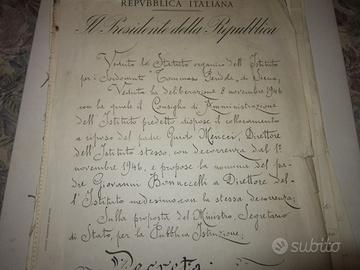 REPVBBLICA ITALIANA
Il Presidente della Repubblica
Veduto lo Statuto organico dell'Istituto
per i Sordomuti "Tommaso Pendola" di Siena;
Veduta la deliberazione 8 novembre 1946
con la quale il Consiglio di Amministrazione
dell'Istituto predetto dispose il collocamento
a riposo del padre Guido Mencci, Direttore
dell'Istituto stesso, con decorrenza dal 1º
novembre 1946, e propose la nomina del pa-
dre Giovanni Bonnccelli a Direttore del-
l'Istituto medesimo con la stessa decorrenza;
Sulla proposta del Ministro, Segretario
di Stato, per la Pubblica Istruzione;
Decreta:
subito